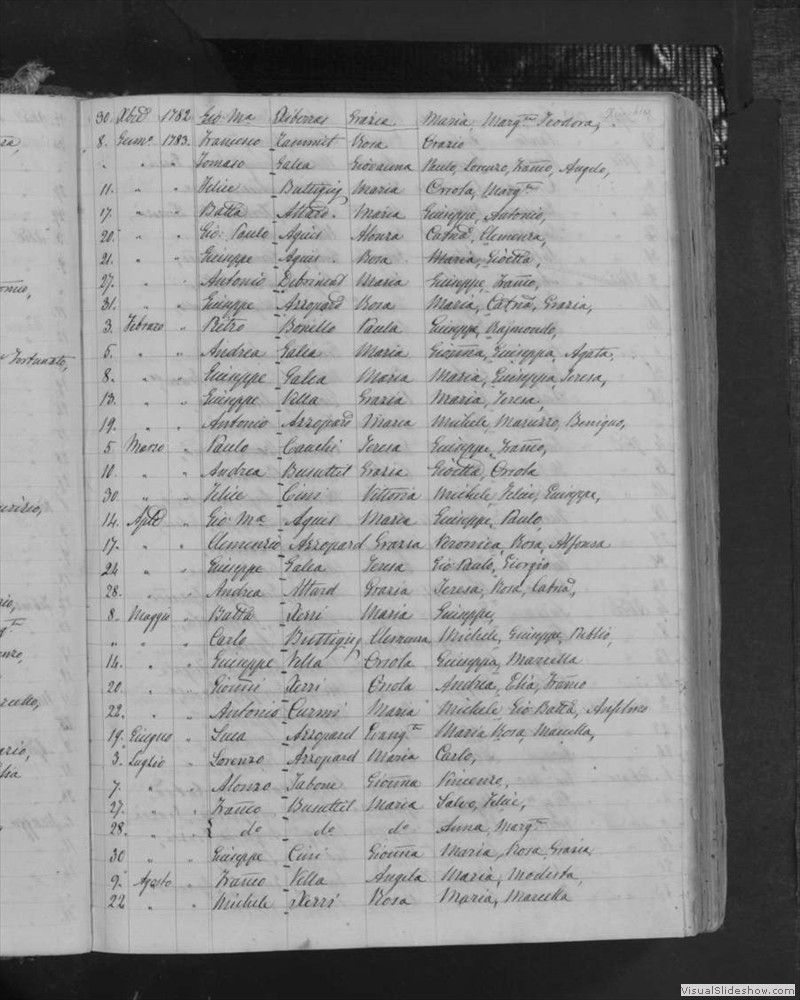 30. Xbrē 1782 Gio Mª Xiberras Grazia Maria, Margta Teodora,
8. Genno 1783. Francesco Zammit Rosa Orazio
„ „ „ Tomaso Galea Giovanna Paulo, Lorenzo, Franco, Angelo,
11. „ „ Felice Buttigieg Maria Orsola, Margta
17. „ „ Batta Attard. Maria Giuseppe, Antonio,
20. „ „ Gio: Paulo Agius Alonza Catna, Clemenza,
21. „ „ Giuseppe Agius. Rosa Maria, Gioetta,
27. „ „ Antonio Debrincat Maria Giuseppe, Franco,
31. „ „ Giuseppe Azzopard Rosa Maria, Catna, Grazia,
3. Febraro „ Pietro Bonello Paula Giuseppe, Rajmondo,
5. „ „ Andrea Galea Maria Gioanna, Giuseppa, Agata,
8. „ „ Giuseppe Galea Maria Maria, Giuseppa, Teresa,
13. „ „ Giuseppe Vella Grazia Maria, Teresa,
19. „ „ Antonio Azzopard Maria Michele, Maurizo, Benigno,
5 Marzo „ Paulo Cauchi Teresa Giuseppe, Franco,
10. „ „ Andrea Busuttil Grazia Gioetta, Orsola
30 „ „ Felice Cini Vittoria Michele, Felice, Giuseppe,
14. Aple „ Gio Mª Agius Maria Giuseppe, Paulo,
17. „ „ Clemenzio Azzopard Grazia Veronica, Rosa, Alfonsa
24 „ „ Giuseppe Galea Teresa Gio Paulo, Giorgio
28. „ „ Andrea Attard Grazia Teresa, Rosa, Catna,
8. Maggio „ Batta Xerri Maria Giuseppe,
„ „ „ Carlo Buttigieg Clemenza Michele, Giuseppe, Publio,
14. „ „ Giuseppe Vella Orsola Giuseppa, Marcella
20. „ „ Gioanni Xerri Orsola Andrea, Elia, Franco
22. „ „ Antonio Curmi Maria Michele, Gio Batta, Anselmo
19. Giugno „ Luca Azzopard Evangta Maria Rosa, Marcella,
3. Luglio „ Lorenzo Azzopard Maria Carlo,
7. „ „ Alonzo Tabone Gioanna Vincenzo,
27. „ „ Franco Busuttil Maria Salvo, Felice,
28. „ „ { do do do Anna, Margta
30 „ „ Giuseppe Cini Gioanna Maria, Rosa, Grazia
9. Agosto „ Franco Vella Angela Maria, Modesta,
22 „ „ Michele Xerri Rosa Maria, Marcella
VisualSlideshow.com